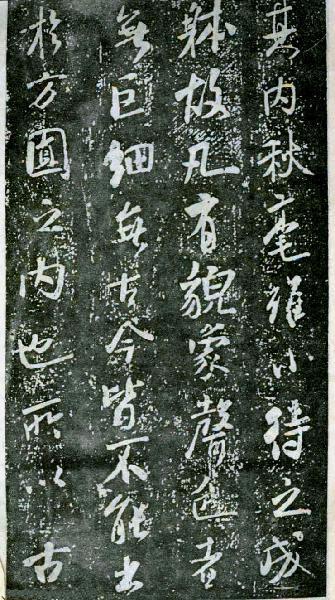 其内秋毫雖小待之成
躰故凡有貌象聲色者
無巨細無古今皆不能出
於方圓之内也所以古